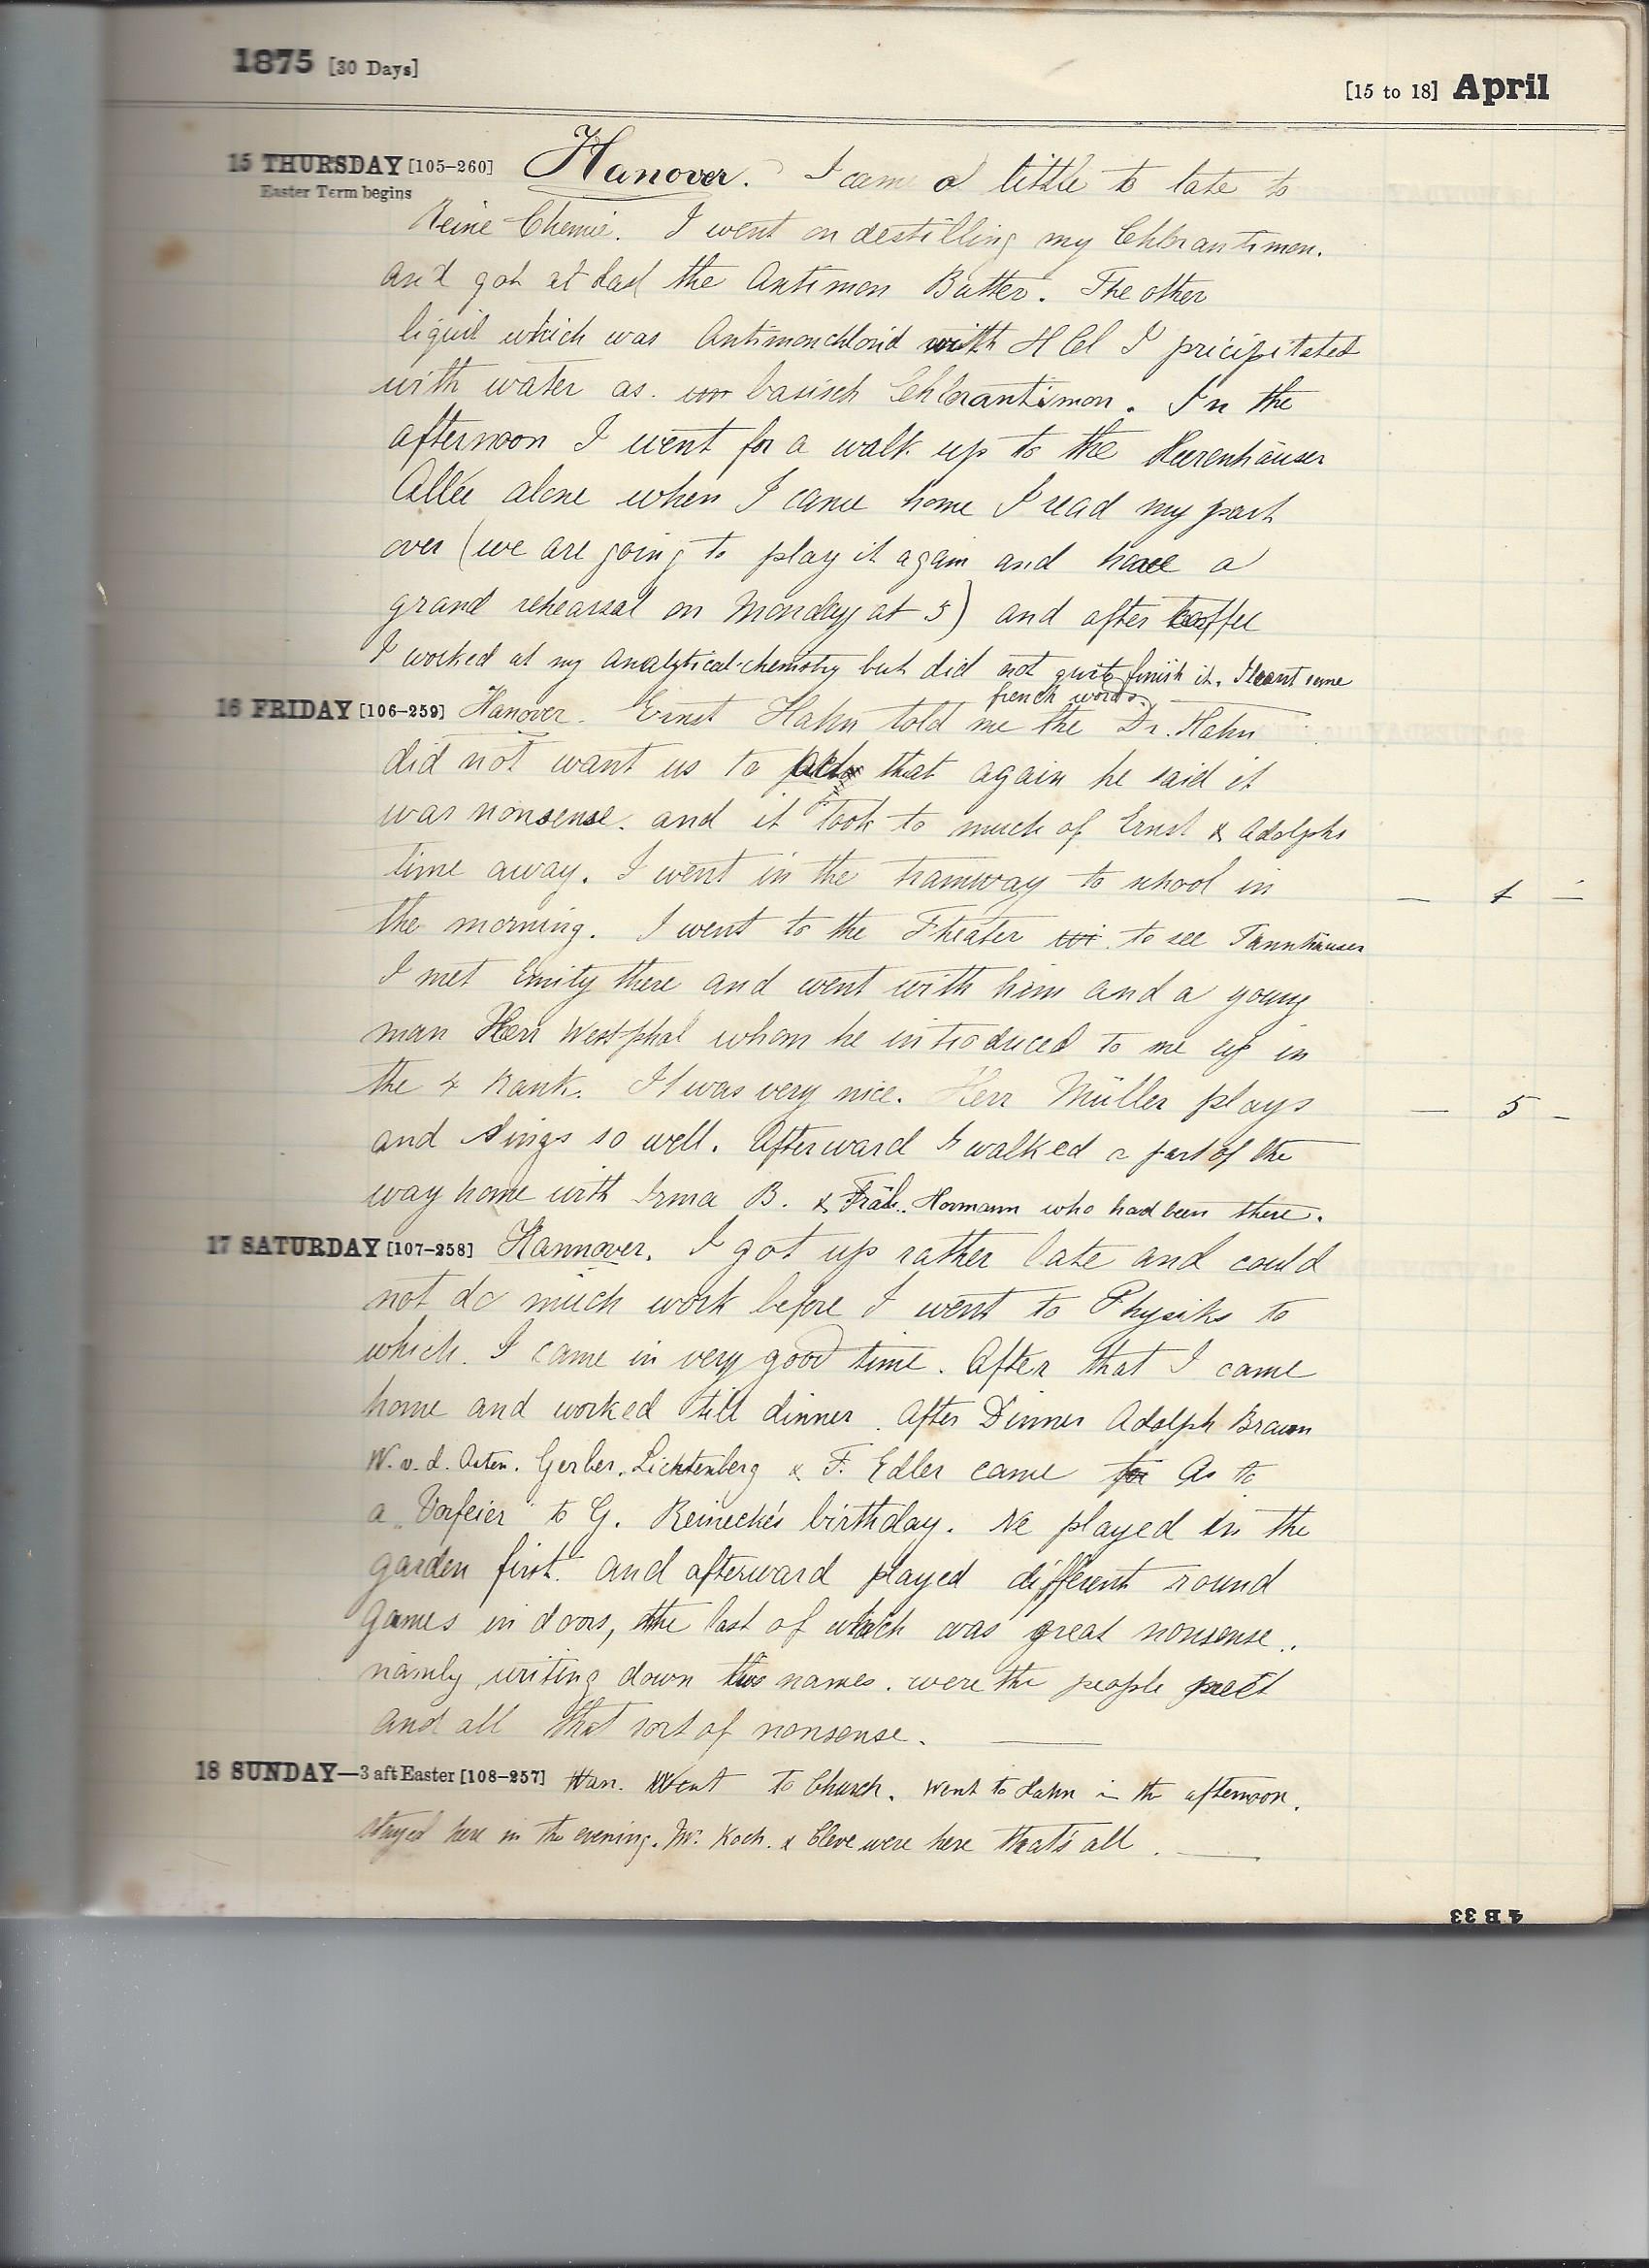 1875 [30 Days]
[15 to 18] April
15 THURSDAY [105-260] Hanover. I came a little to late to
Easter Term begins
Reine Chemie. I went on destilling my Chlorantimon.
and got at last the Antimon Butter. The other
liquid which was Antimonchlorid with H Cl I pricipitated
with water as basisch Chlorantimon. In the
afternoon I went for a walk up to the Herrenhäuser
Allée alone when I came home I read my part
over (we are going to play it again and have a
grand rehearsal on Monday at 5) and after coffee
I worked at my analytical-chemistry but did not quite finish it. I learnt some
french words.
16 FRIDAY [106-259] Hanover. Ernst Hahn told me the Dr. Hahn
did not want us to that again he said it
was nonsense. and it took to much of Ernst & Adolphs
time away. I went in the tramway to school in
— 1 —
the morning. I went to the Theater to see Tannhäuser
I met Emity there and went with him and a young
man Herr Westphal whom he introduced to me up in
the 4 Rank. It was very nice. Herr Müller plays
— 5 —
and sings so well. Afterward I walked a part of the
way home with Irma B. & Hormann who had been there.
17 SATURDAY [107-258] Hannover. I got up rather late and could
not do much work before I went to Physiks to
which I came in very good time. After that I came
home and worked till dinner. After Dinner Adolph Braun
W. v. d. Osten. Gerber. Lichtenberg & F. Edler came for As to
a „Vorfeier" to G. Reinecke's birthday. We played in the
garden first. and afterward played different round
games in doors, the last of which was great nonsense..
namly, writing down two names. were the people meet
and all that sort of nonsense.
18 SUNDAY—3 aft Easter [108-257] Han. Went to Church. Went to Hahn in the afternoon.
stayed here in the evening. Mr. Koch. & Cleve were here that's all.
4 B 33